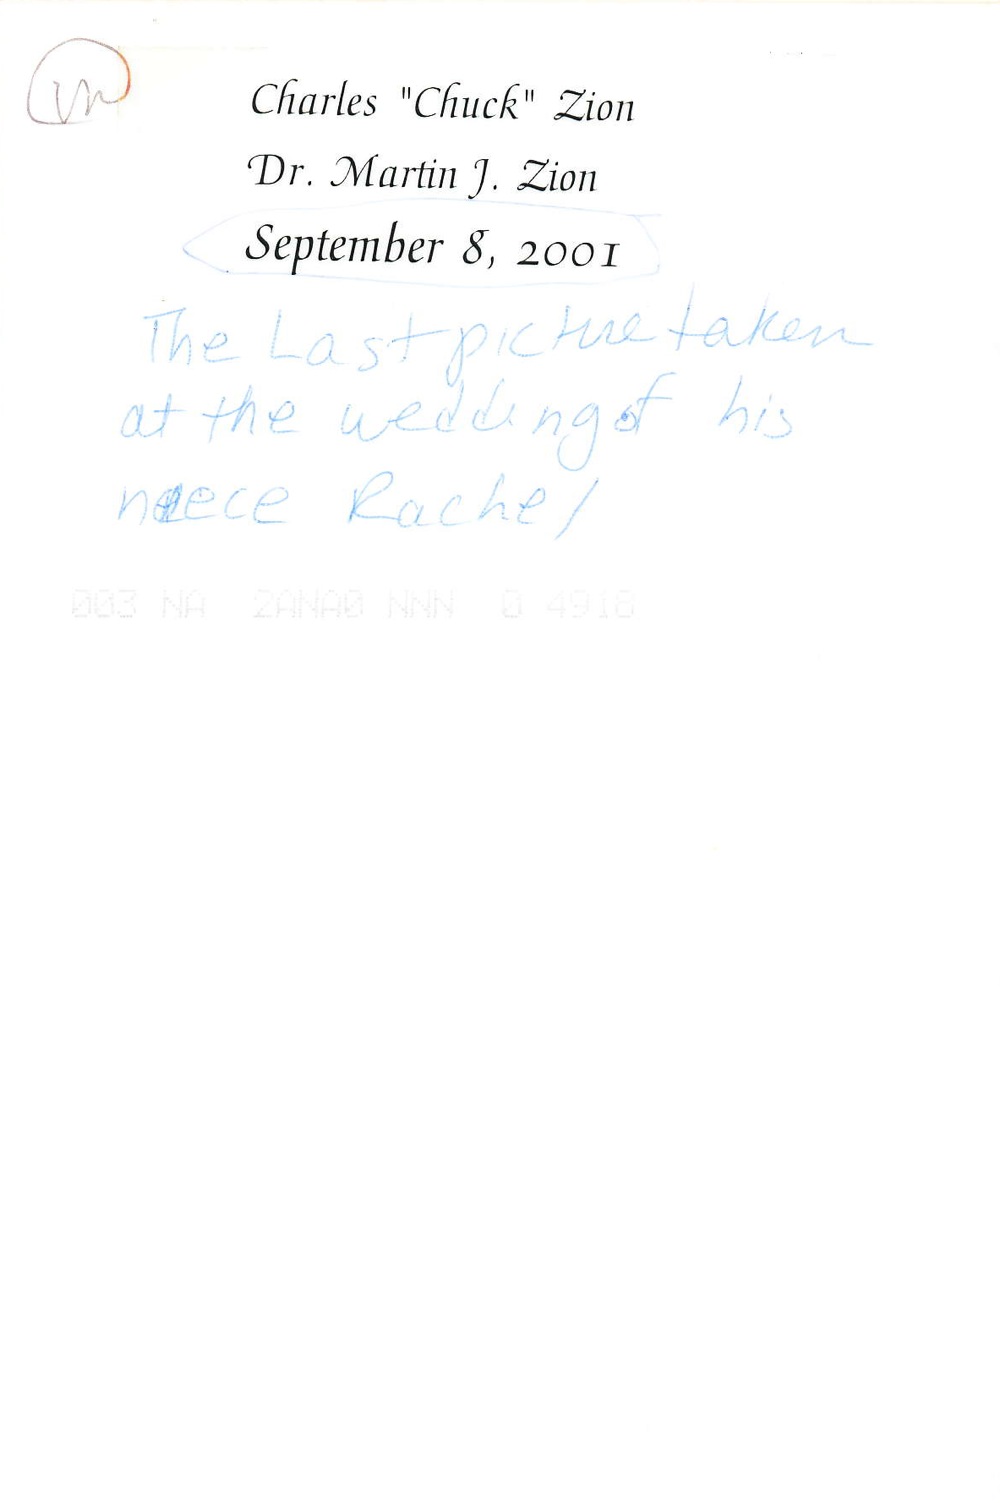 Charles "Chuck" Zion
Dr. Martin J. Zion
September 8, 2001
The Last picture taken
at the wedding of his
neece Rachel
003 NA 2ANA0 NNN 0 4918